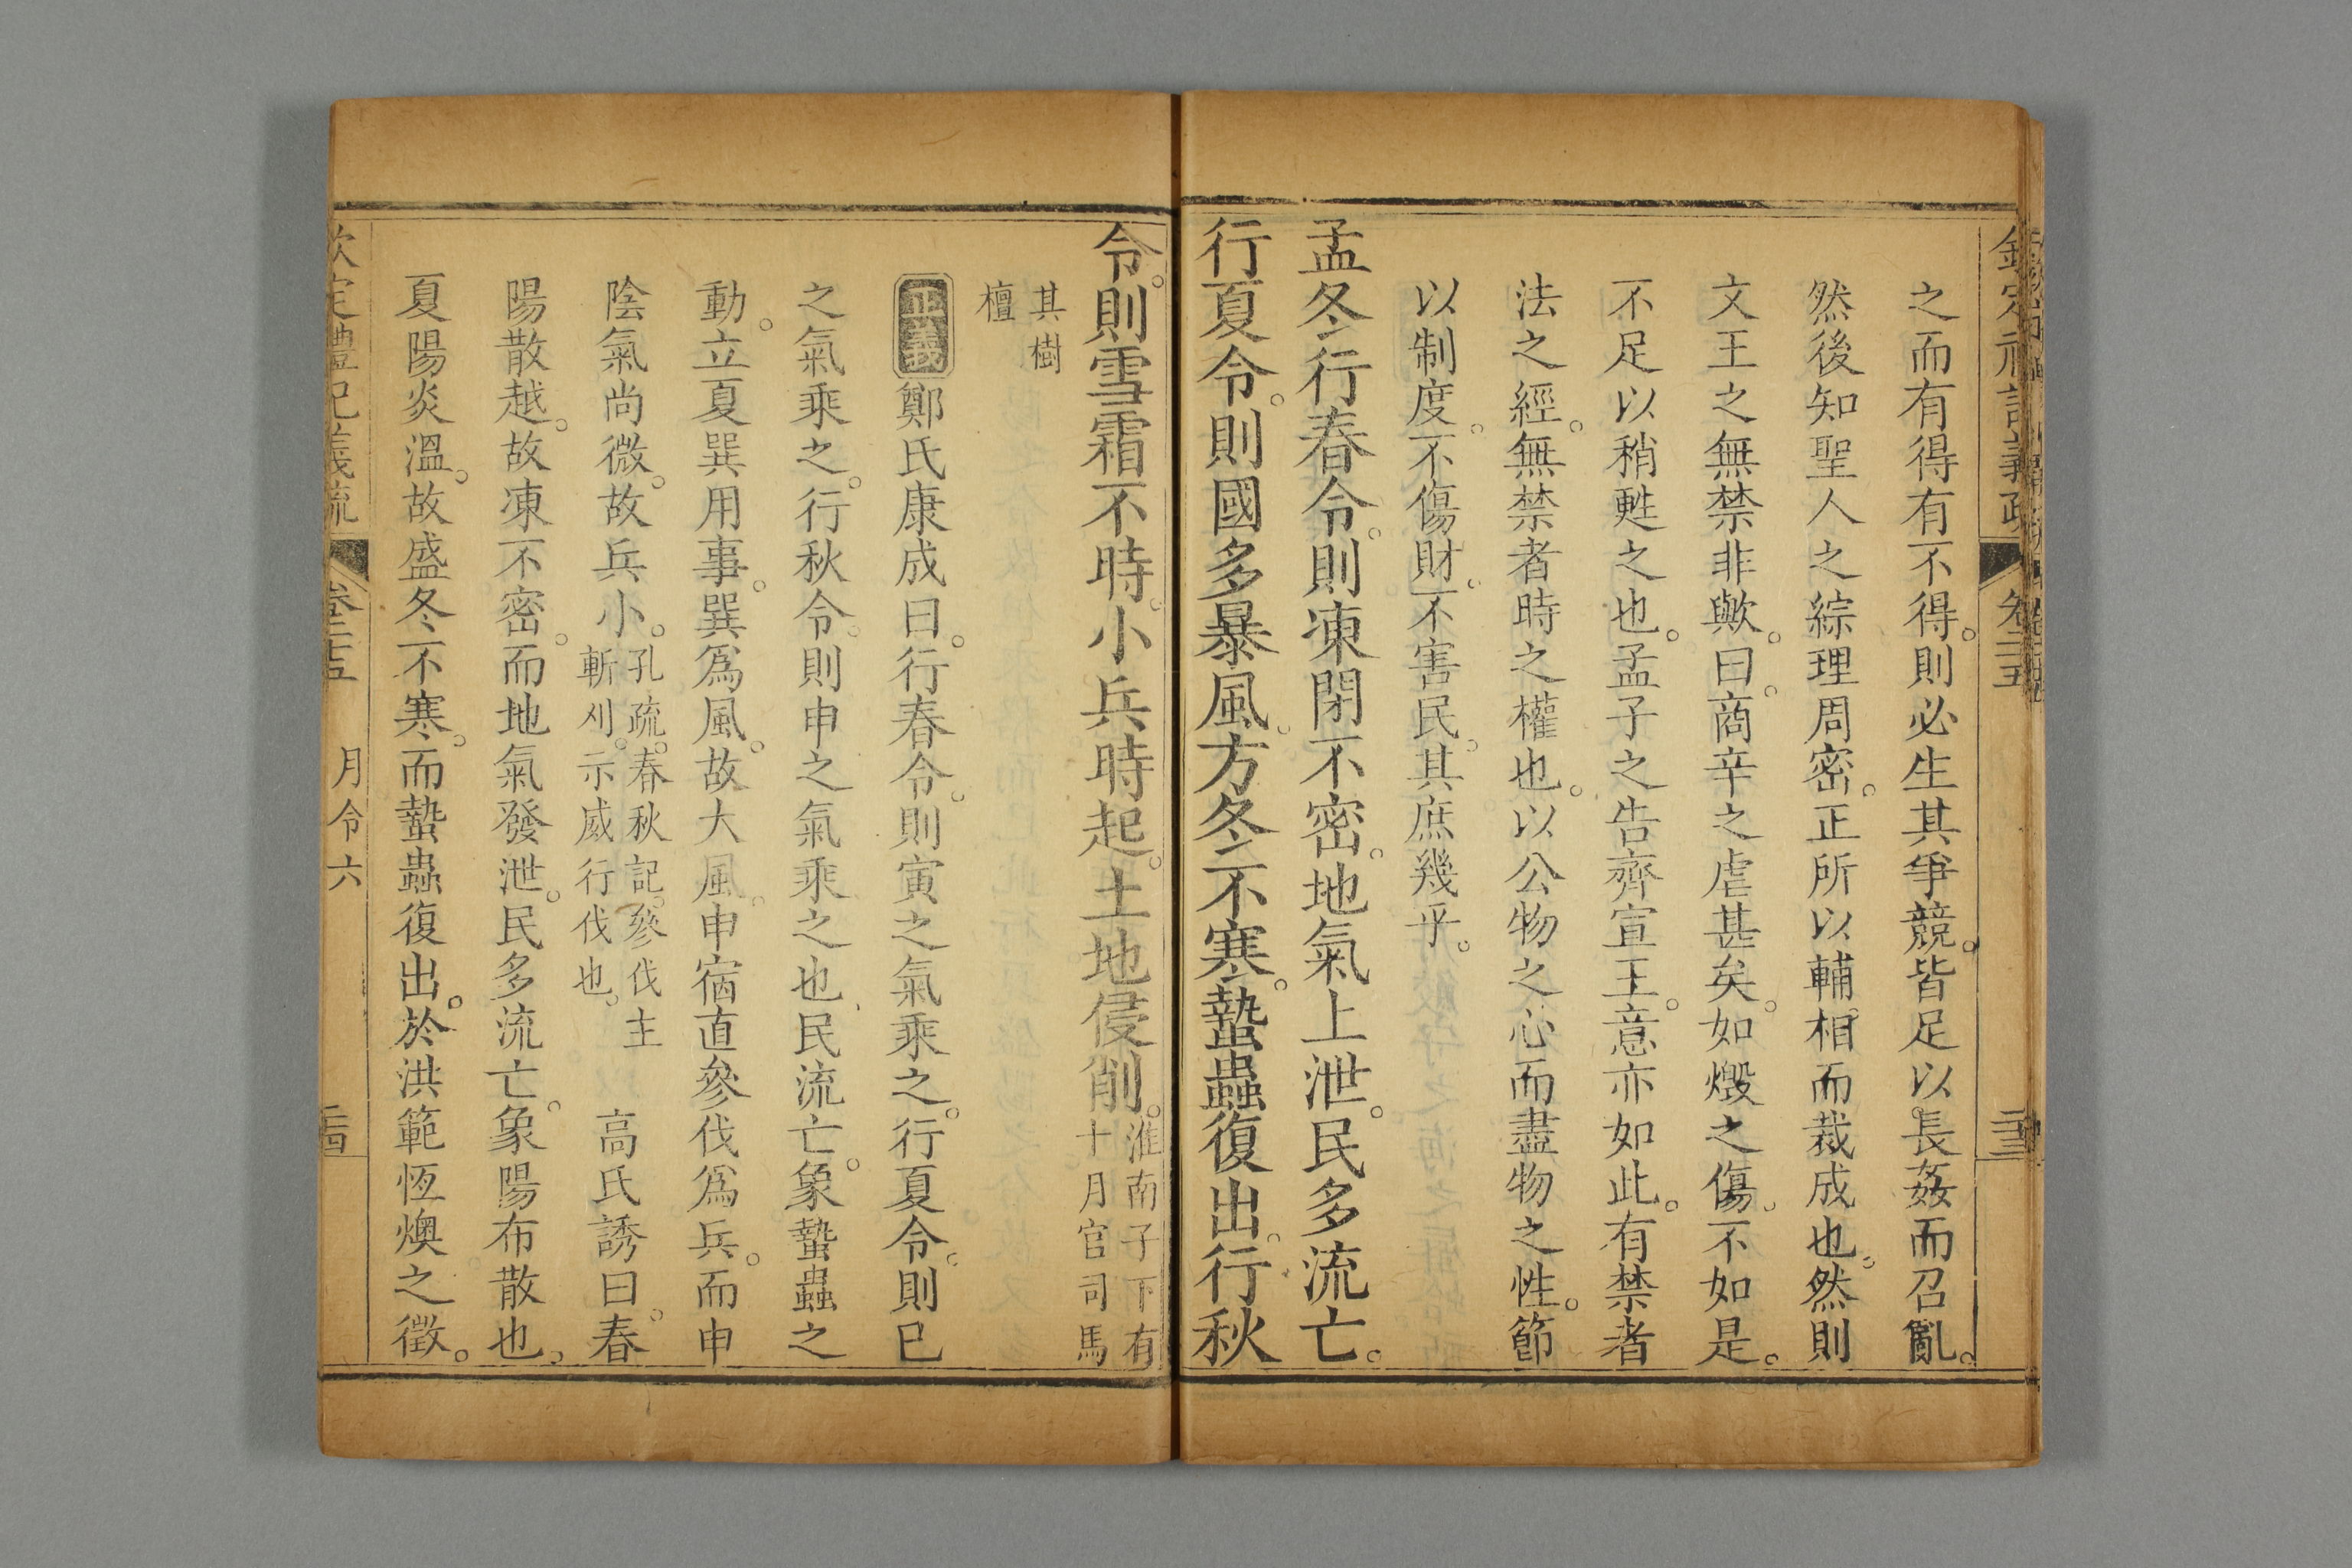 之而有得有不得。則必生其爭競。皆足以長姦而召亂。
然後知聖人之綜理周密。正所以輔相而裁成也。然則
文王之無禁非歟。曰。商辛之虐甚矣。如燬之傷。不如是。
不足以稍甦之也。孟子之告齊宣王。意亦如此。有禁者
法之經。無禁者時之權也。以公物之心而盡物之性。節
以制度。不傷財。不害民。其庶幾乎。
孟冬行春令。則凍閉不密。地氣上泄。民多流亡。
行夏令。則國多暴風。方冬不寒。蟄蟲復出。行秋
令。則雪霜不時。小兵時起。土地侵削。淮南子下有
十月官司馬
其樹
檀
正義鄭氏康成曰。行春令。則寅之氣乘之。行夏令。則巳
之氣乘之。行秋令。則申之氣乘之也、民流亡。象蟄蟲之
動。立夏巽用事。巽爲風。故大風。申宿直參伐爲兵。而申
陰氣尚微。故兵小。孔疏。春秋記。參伐主
斬刈。示威行伐也。
高氏誘曰。春
陽散越。故凍不密。而地氣發泄。民多流亡。象陽布散也。
夏陽炎溫。故盛冬不寒。而蟄蟲復出。於洪範恆燠之徵。
欽定禮記義疏
卷二十五
月令六
二十四